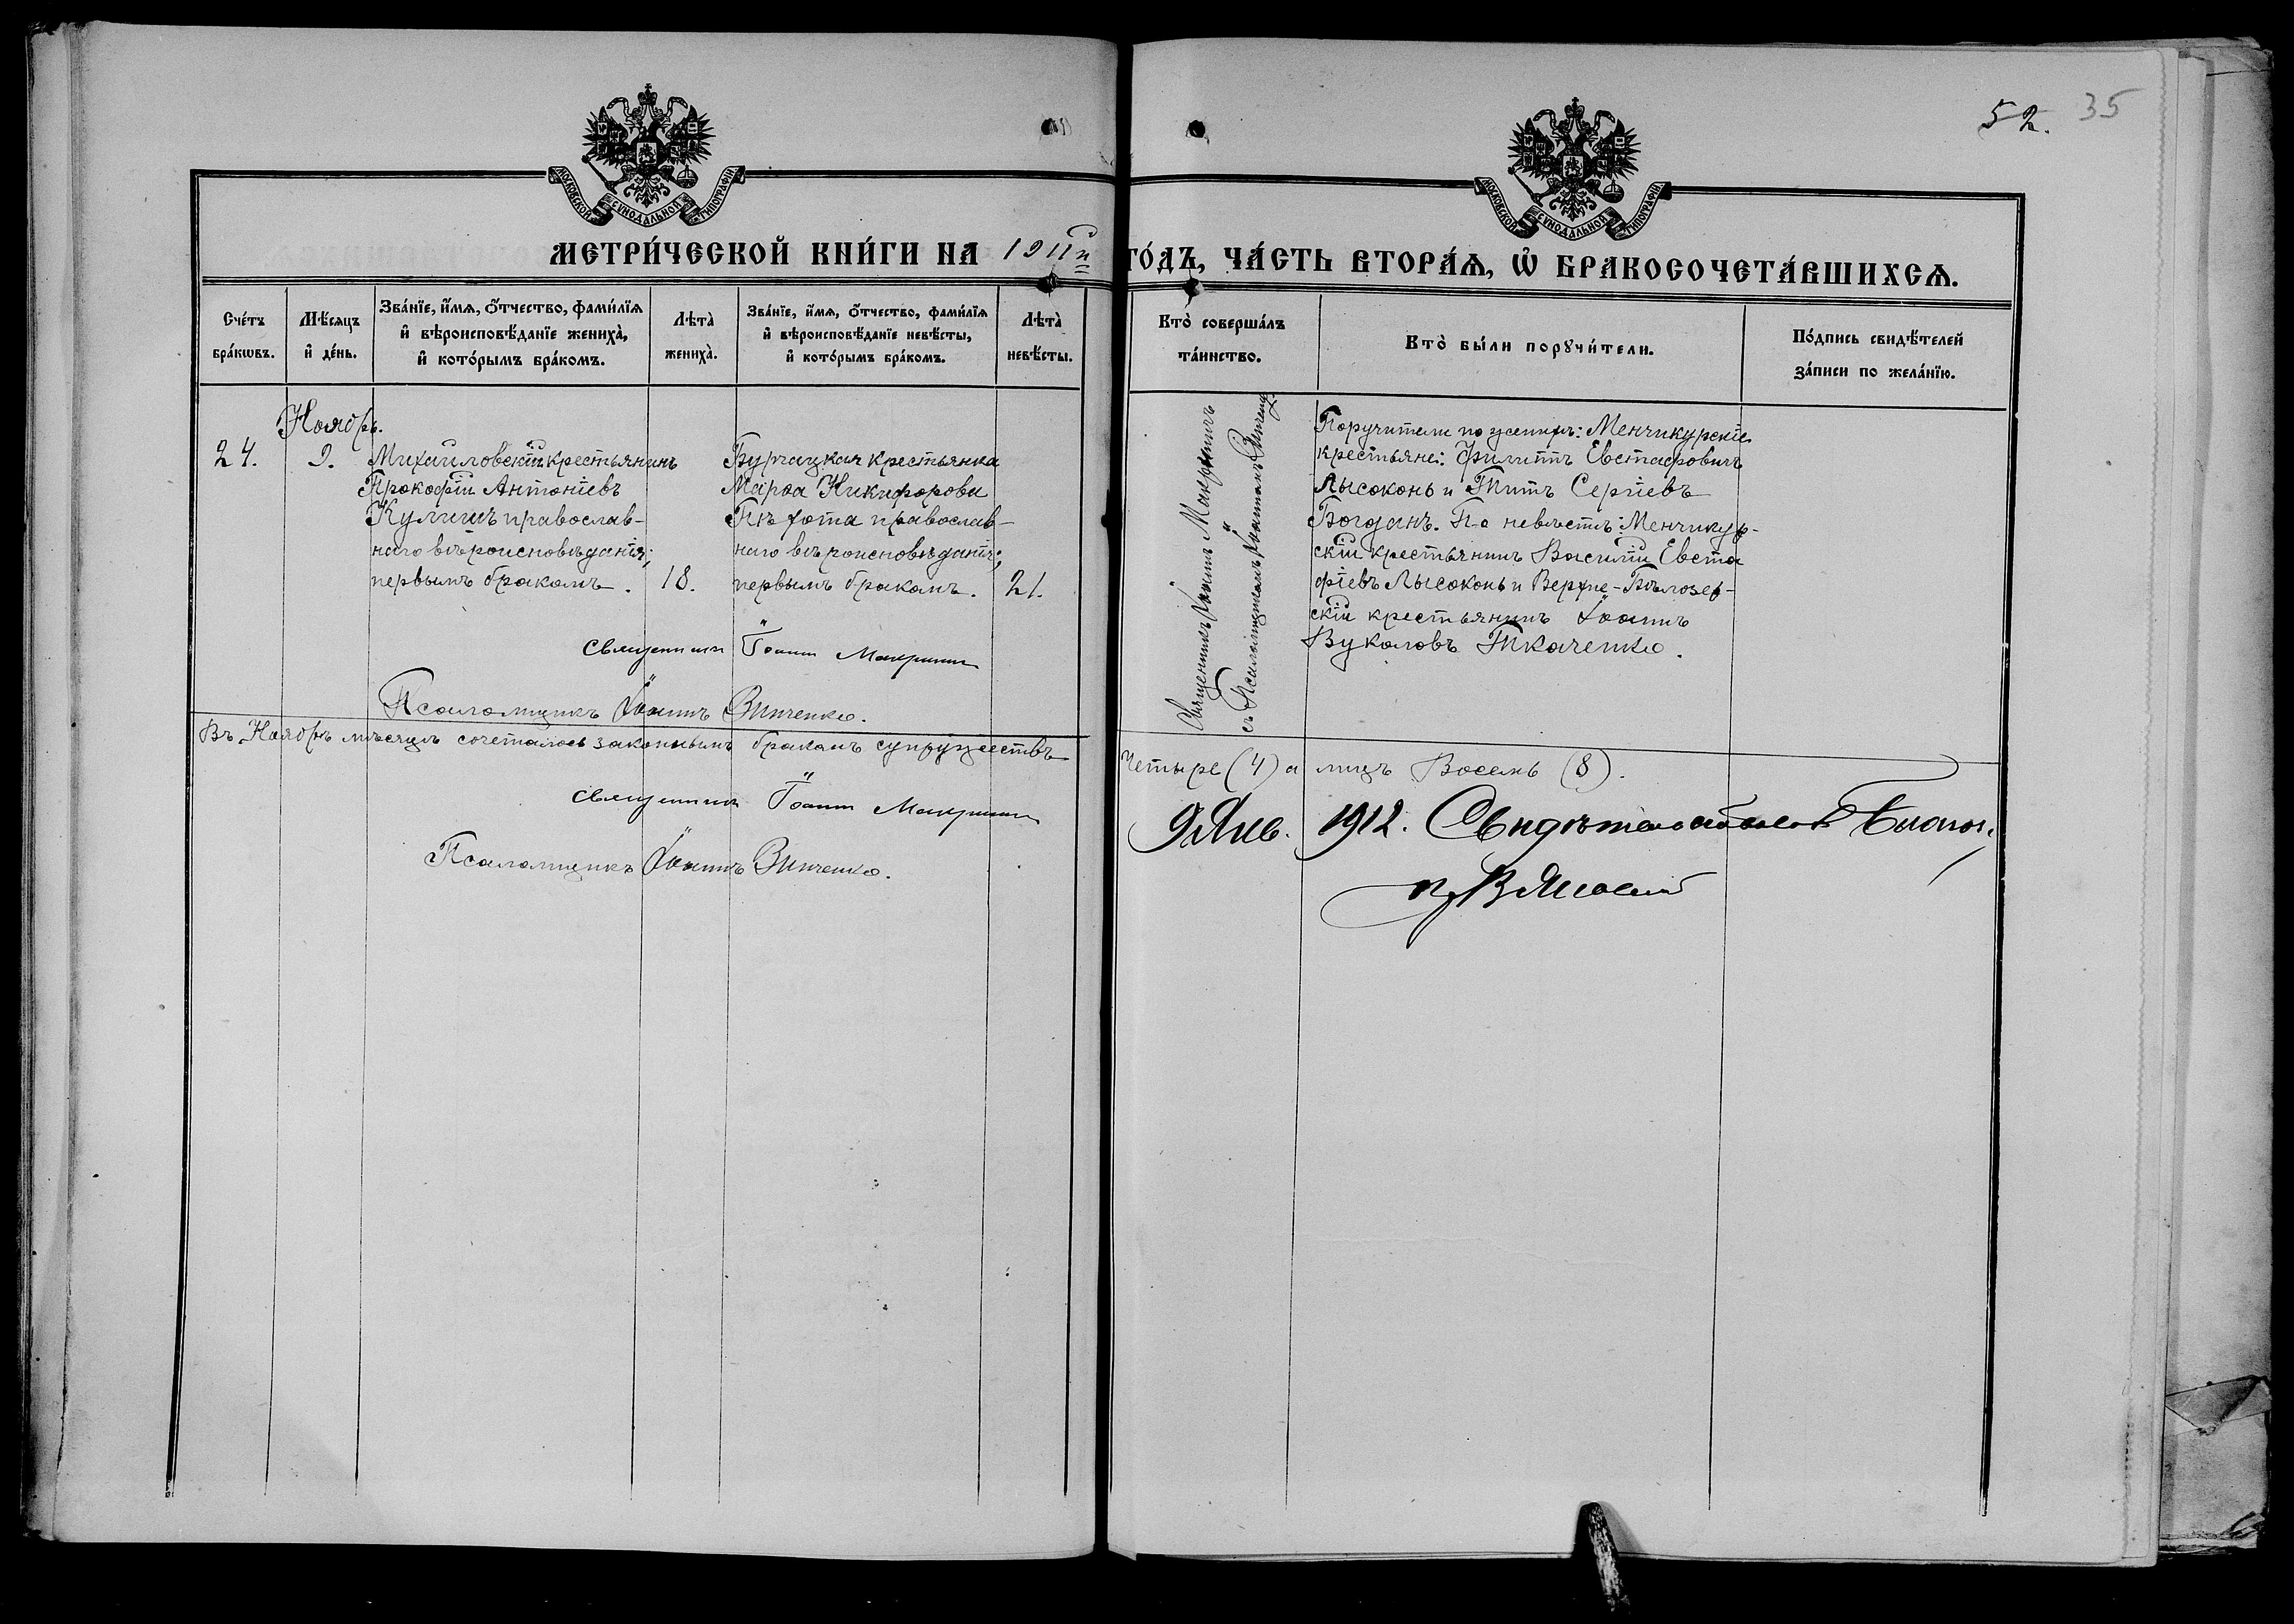 52. 35
МОСКОВСКОЙ СѴНОДАЛЬНОЙ ТИПОГРАФІИ
МОСКОВСКОЙ СѴНОДАЛЬНОЙ ТИПОГРАФІИ
МЕТРИ́ЧЕСКОЙ КНИ́ГИ НА 1911й ГО́ДЪ, ЧА́СТЬ ВТОРА́Ѧ, Ѽ БРАКОСОЧЕТА́ВШИХСѦ.
Сче́тъ
бра́кѡвъ.
Мѣ́сяцъ
и҆ де́нь.
Зва́нїе, и҆́мѧ, ѻ҆́тчество, фами́лїѧ
и҆ вѣроисповѣ́данїе жениха̀,
и҆ кото́рымъ бра́комъ.
Лѣта̀
жениха̀.
Зва́нїе, и҆́мѧ, ѻ҆́тчество, фами́лїѧ
и҆ вѣроисповѣ́данїе невѣ́сты,
и҆ кото́рымъ бра́комъ.
Лѣта̀
невѣ́сты.
Кто̀ соверша́лъ
та́инство.
Кто̀ бы́ли порꙋчи́тели.
По́дпись свидѣ́телей
за́писи по жела́нїю.
Ноябрь.
24.
9.
Михайловскій крестьянинъ
Прокофій Антоніевъ
Кулишъ православ-
наго вѣроисповѣданія;
первымъ бракомъ.
18.
Бурчацкая крестьянка
Марѳа Никифорова
Пѣхота православ-
наго вѣроисповѣданія;
первымъ бракомъ.
21.
Священникъ Іоаннъ Макринъ
съ Псаломщикомъ Іоанномъ Зинченко
Поручители по женихѣ: Менчикурскіе
крестьяне: Филиппъ Евстафровичъ
Лысоконь и Титъ Сергіевъ
Богданъ. По невѣстѣ: Менчикур-
скій крестьянинъ Василій Евста
фіевъ Лысоконь и Верхне-Бѣлозер-
скій крестьянинъ Іоаннъ
Вуколовъ Ткаченко.
Священникъ Іоаннъ Макринъ
Псаломщикъ Іоаннъ Зинченко.
Въ Ноябрѣ мѣсяцѣ сочеталось законнымъ бракомъ супружествъ
Четыре (4) а лицъ Восемь (8).
Священникъ Іоаннъ Макринъ
Псаломщикъ Іоаннъ Зинченко.
9 Янв. 1912. Свидѣтельствовалъ Благоч.